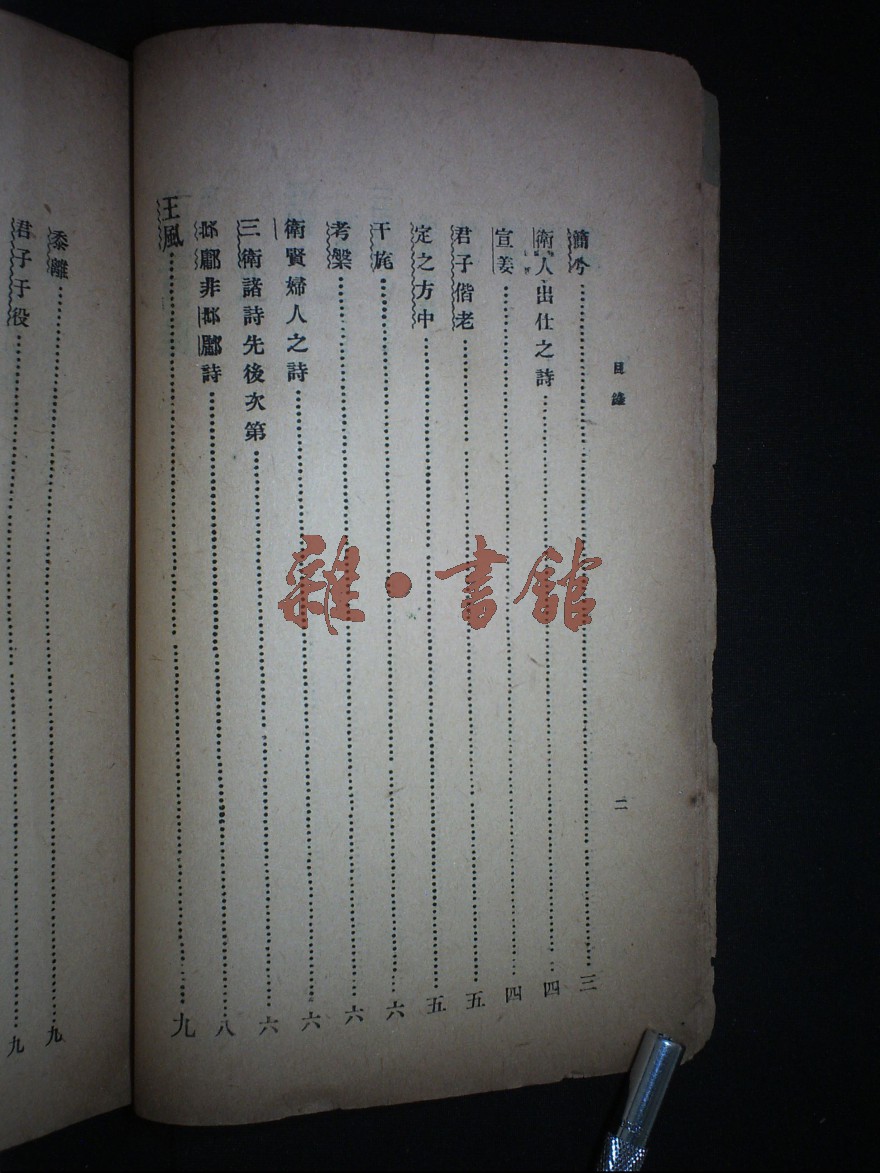 目錄
二
簡兮……三
衛人出仕之詩……四
宣姜……四
君子偕老……五
定之方中……五
干旄……六
考槃……六
衛賢婦人之詩……六
三衛諸詩先後次第……六
邶鄘非邶鄘詩……八
王風……九
黍離……九
君子于役……九
雜·書館